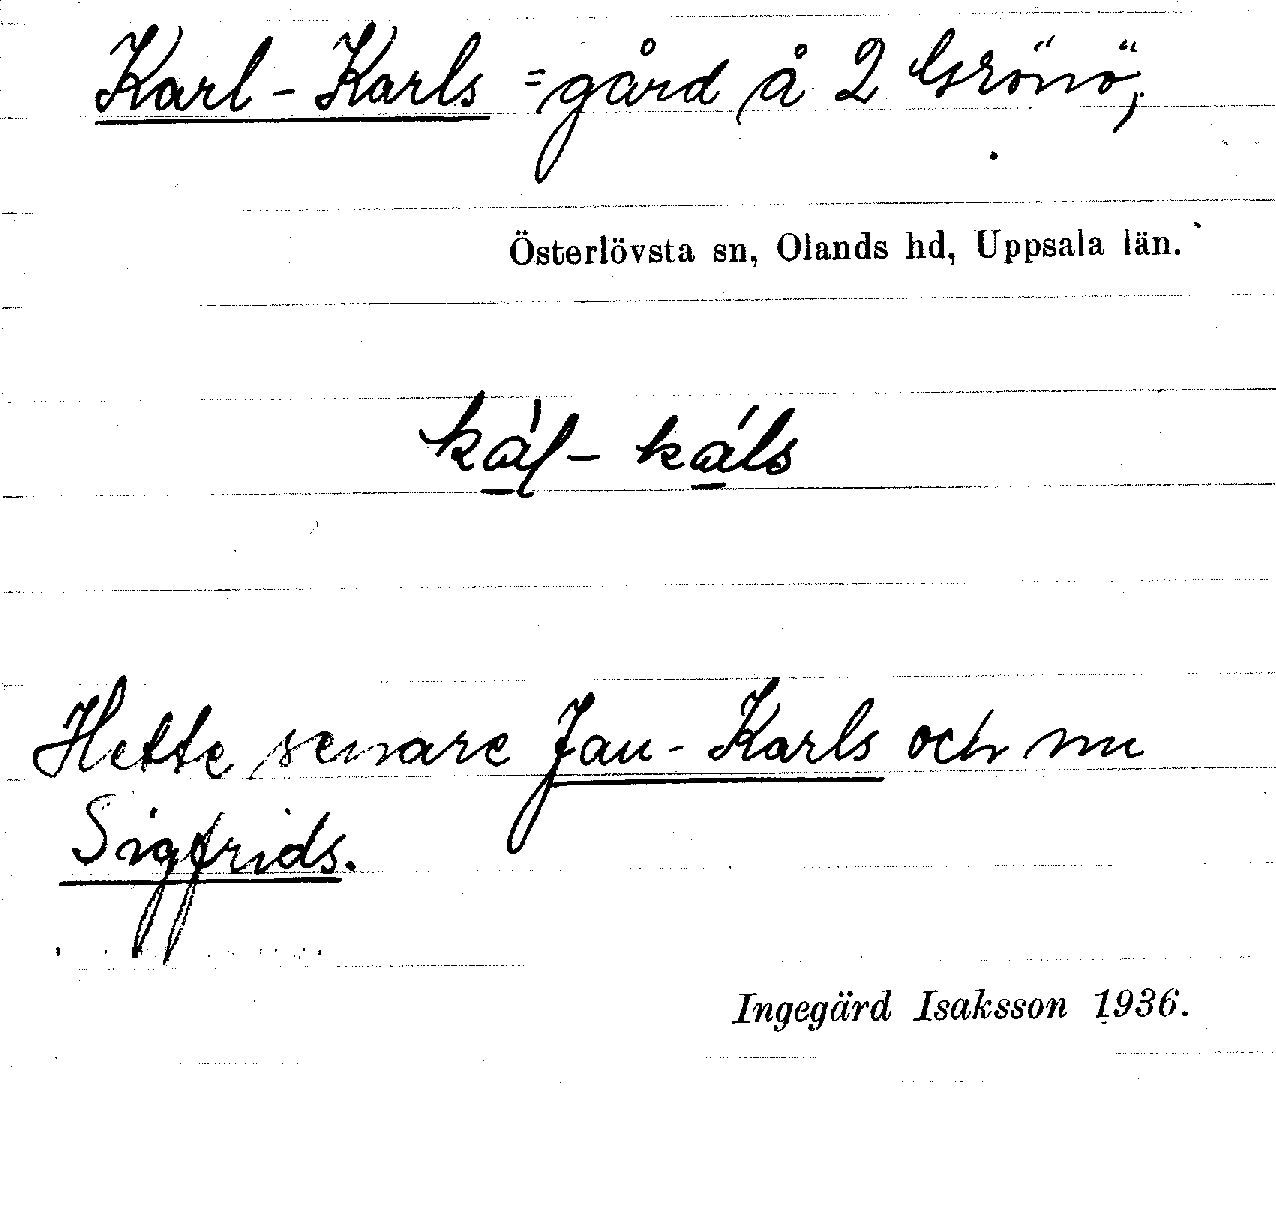 Karl-Karls = gård å 2 Grönö,
Österlövsta sn, Olands hd, Uppsala län.
ka̲̍ɭ- ka̲̍ls
Hette senare Jan-Karls och nu
Sigfrids.
Ingegärd Isaksson 1936.